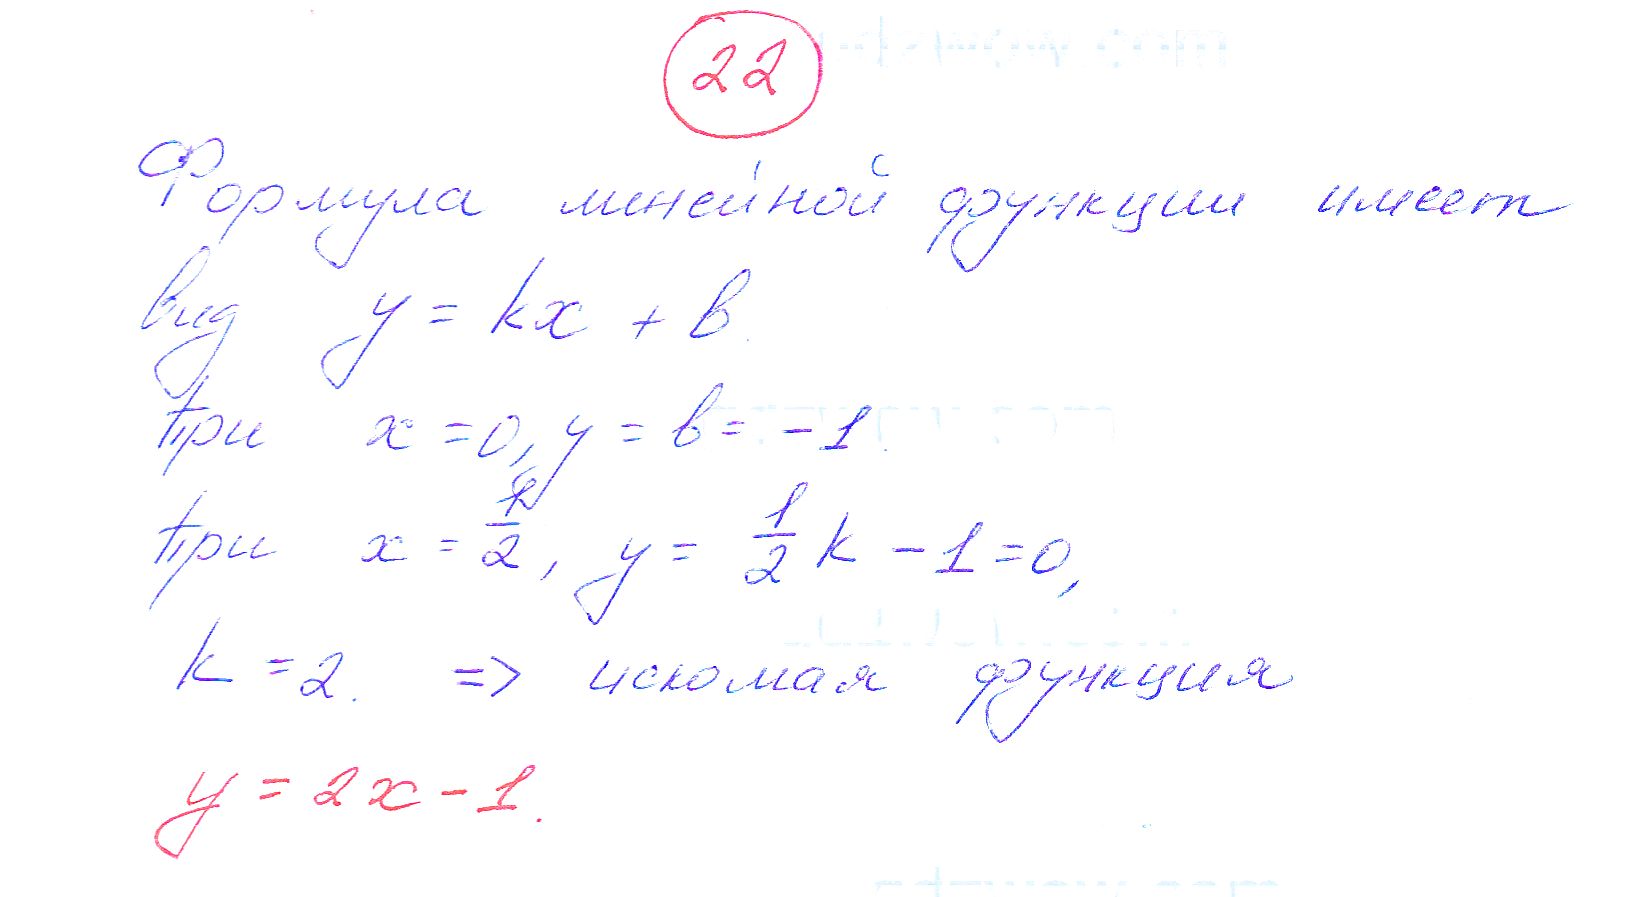 22
Формула линейной функции имеет
вид y = kx + b.
При x = 0, y = b = -1.
При x = 1/2, y = 1/2 k - 1 = 0,
k = 2. => искомая функция
y = 2x - 1.